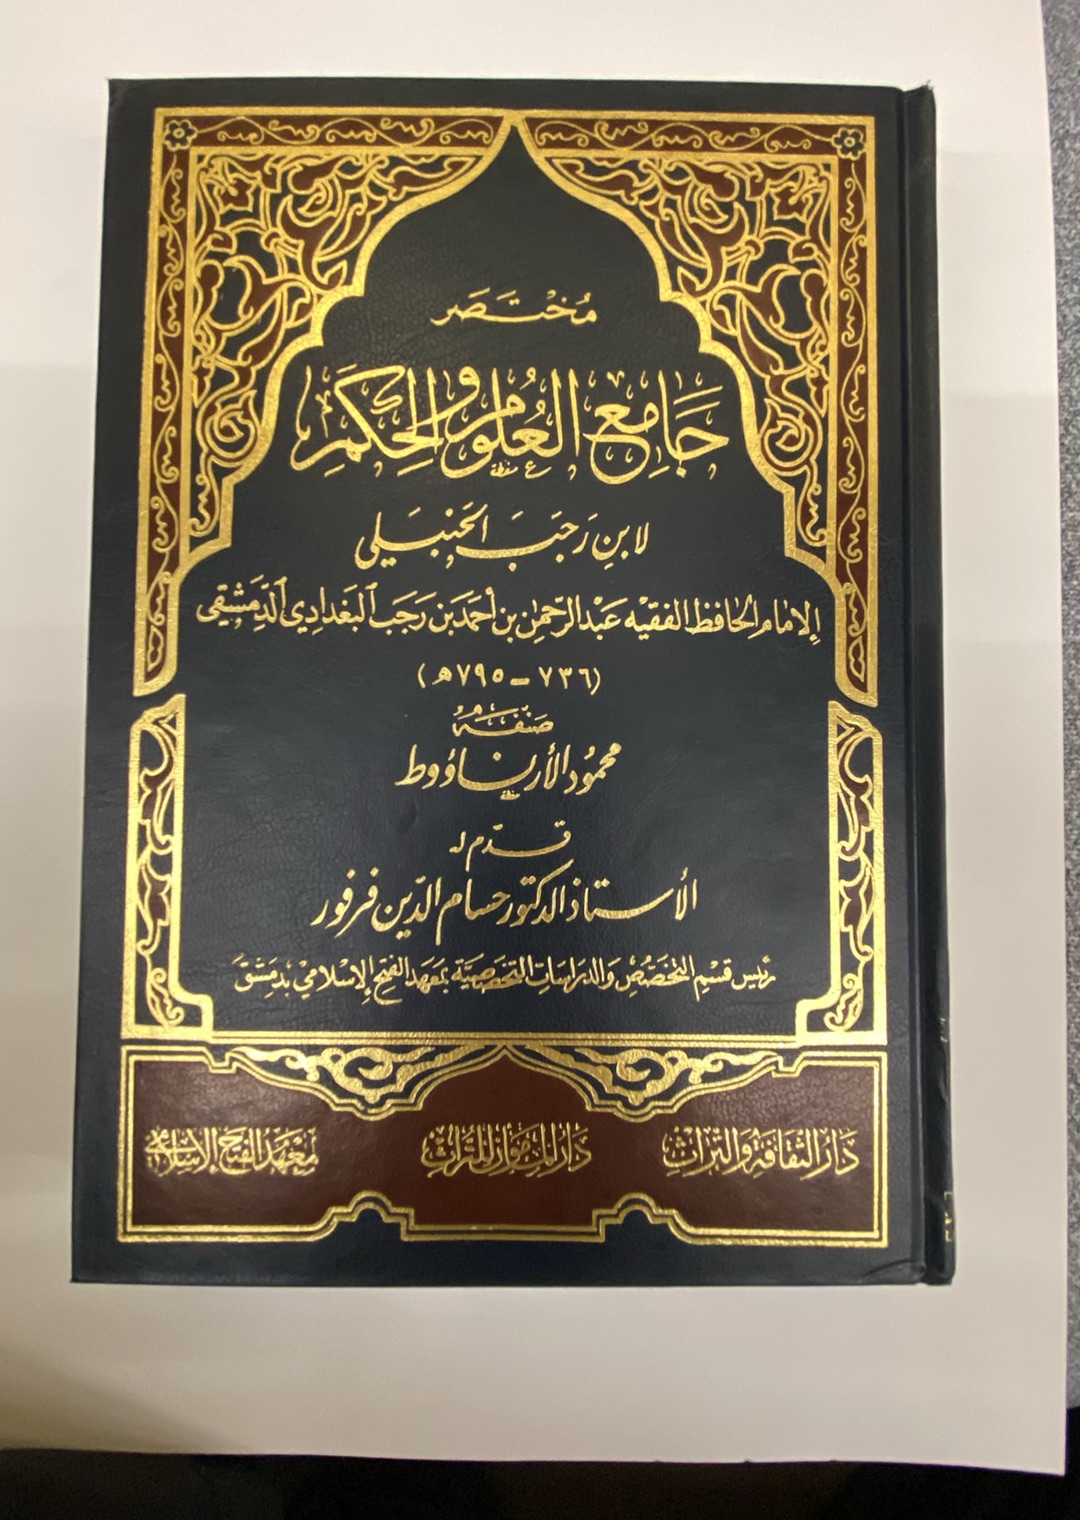 مُخْتَصَر
جَامِع العُلُوم وَالحِكَم
لابنِ رَجَبَ الحَنبَلي
الإمام الحافظ الفقيه عَبْد الرّحمٰن بن أحمَد بن رَجَب البَغدَادِي الدِّمَشْقي
(٧٣٦ - ٧٩٥هـ)
صَنَّفَهُ
محمُود الأرنَاؤوط
قدّم له
الأستاذ الدكتور حسام الدّين فرفور
رئيس قسْمِ التخَصّصْ وَالدراسَات التخَصصيَّة بمَعهَد الفتح الإسْلامي بدمَشق
دَارُ الثقافَة وَالتراثْ
دَارُ المأمُون للتُراثْ
مَعْهَد الفتْح الإسْلَامي